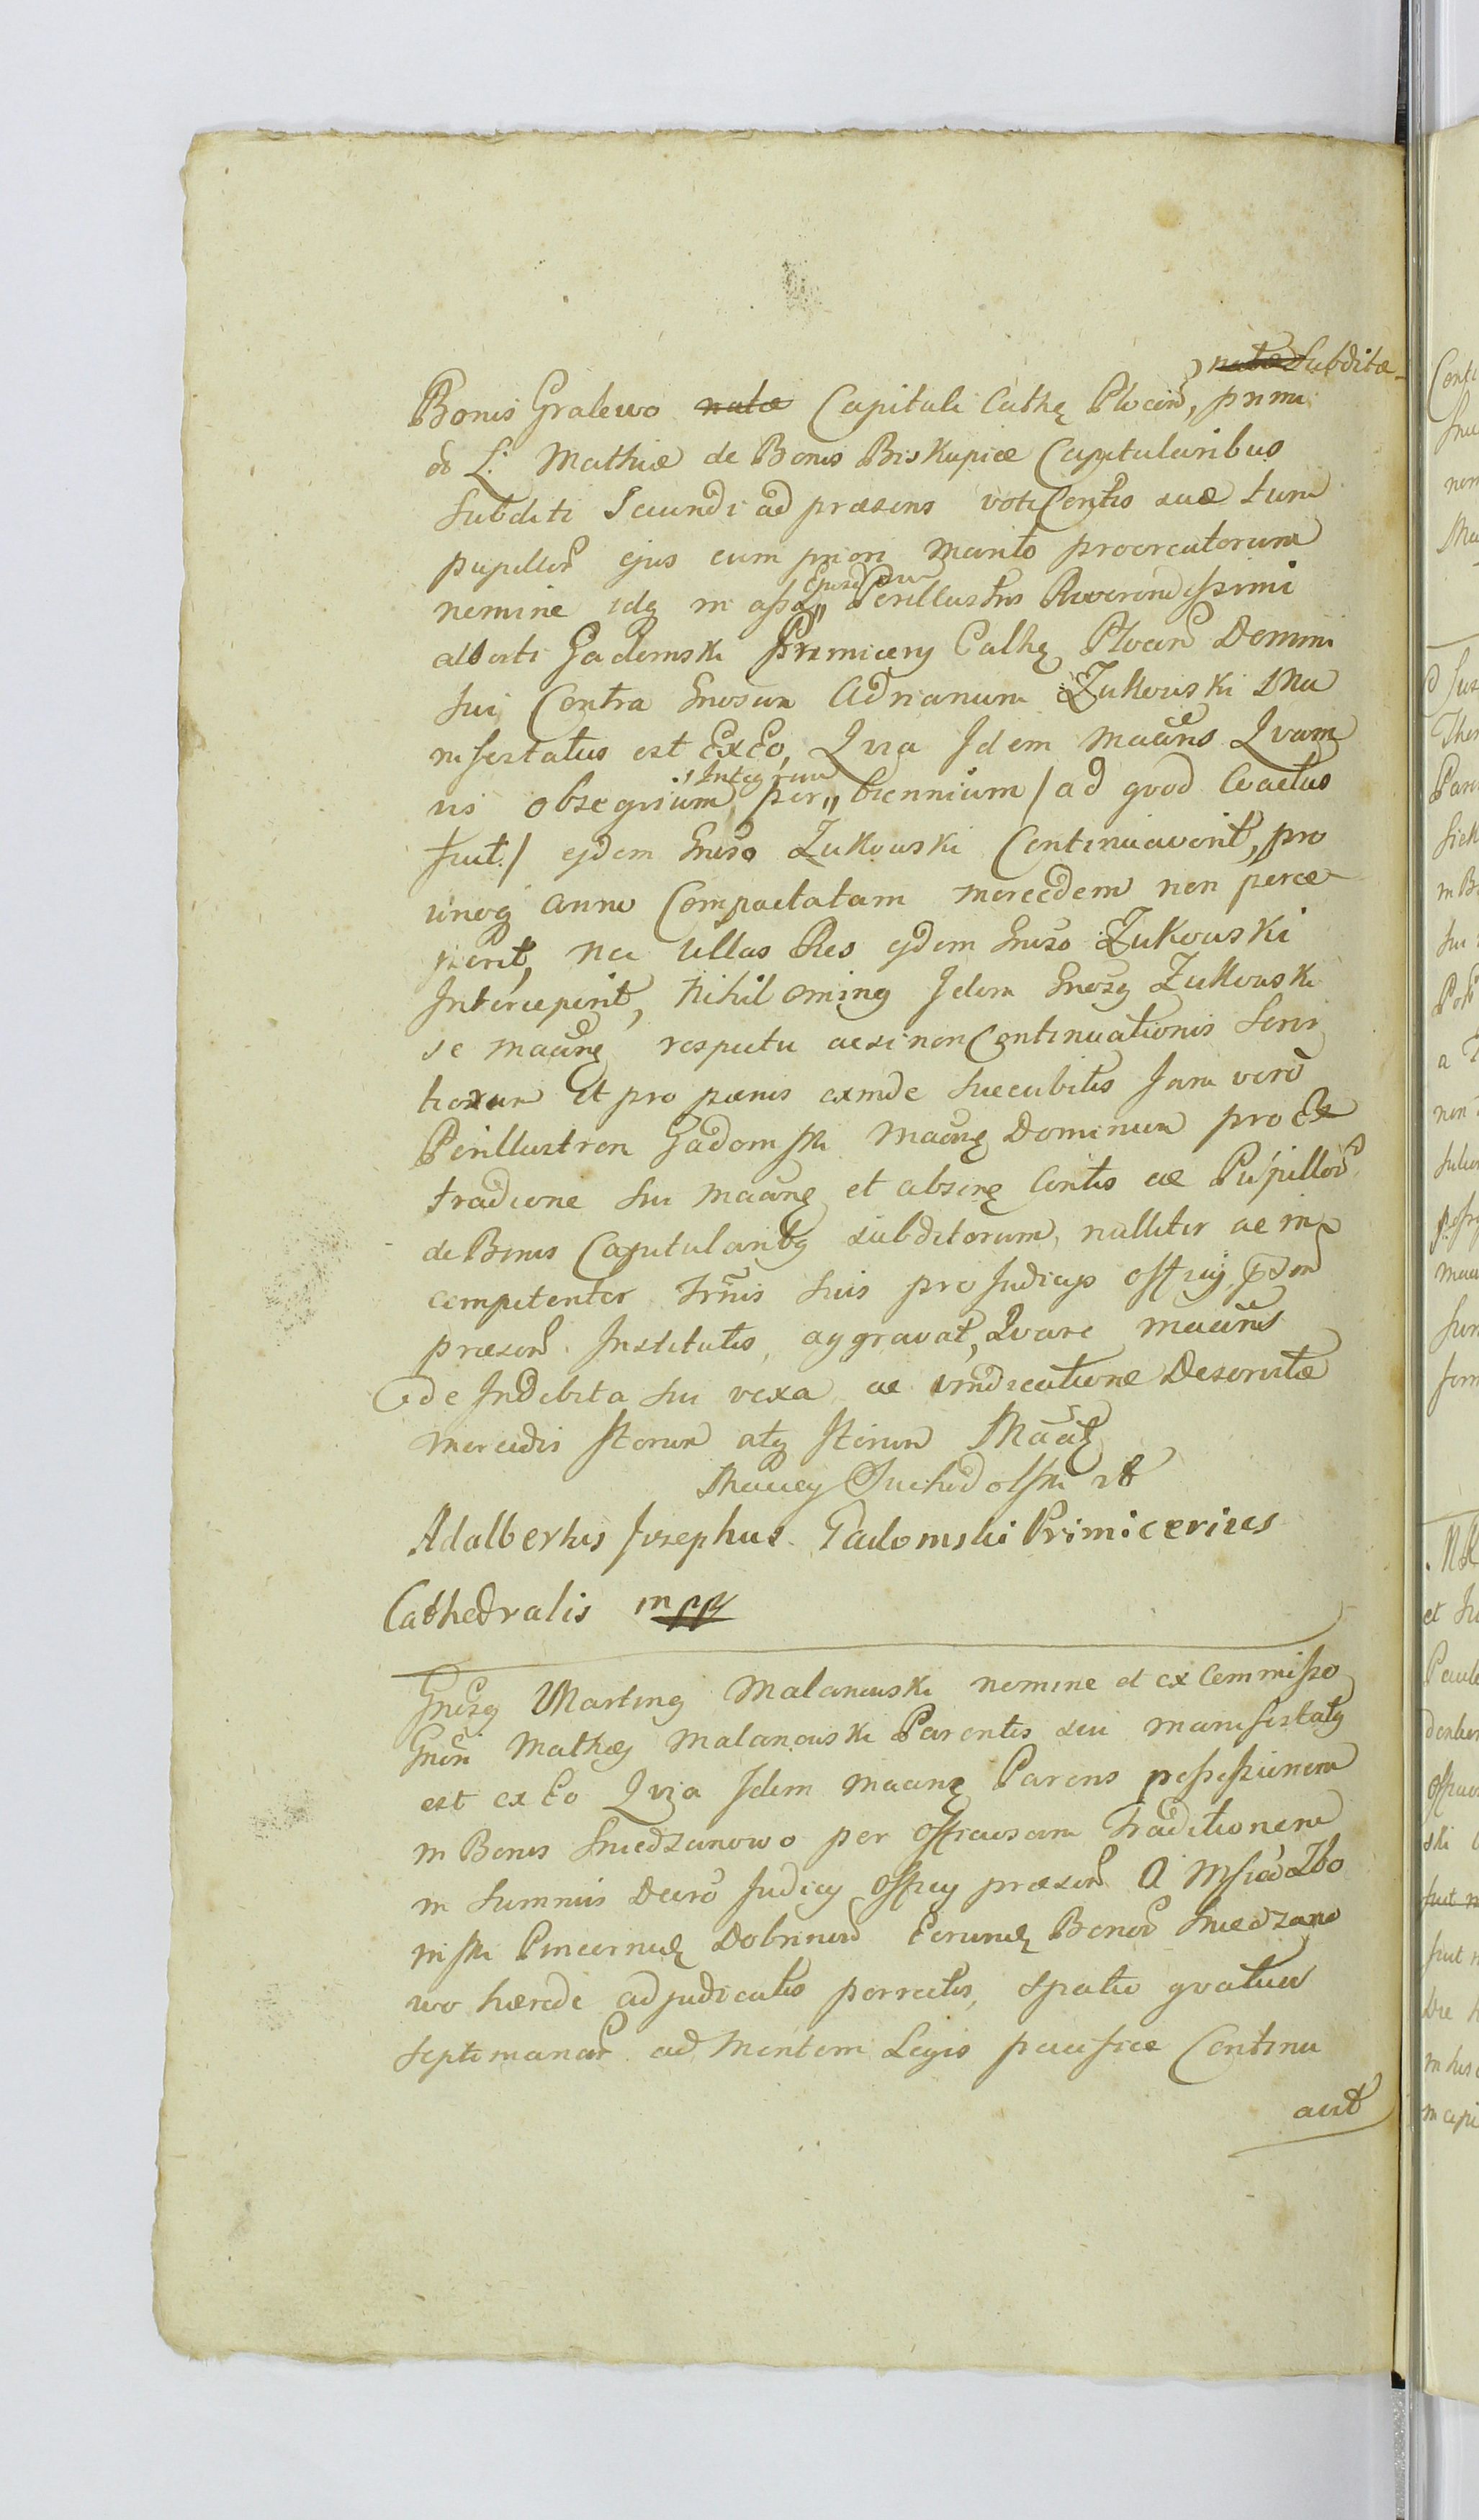 natæ Subditæ
Bonis Gralewo natæ Capituli Cathę Plocen, primi
ol L: Mathiæ de Bonis Biskupice Capitularibus
Subditi Secundi ad præsens voti Contis suæ tum
pupillor ejus cum priori Marito procreatorum
nomine idq in assa Perillustris Reverendissimi
alberti Gadomski Primicery Cathę Plocen Domini
sui Contra Gnosum Adrianum Zukowski Ma
nifestatus est Ex Eo, Qvia Idem Maans Qvam
vis obseqvium Integrum per biennium / ad qvod Coactus
fuit / ejdem Gneso Zukowski Continuaverit, pro
unoq anno Compactatam mercedem non perce
perit, nec Ullas Res ejdem Gneso Zukowski
Interceperit, Nihil ominq Idem Gnosq Zukowski
se Maanę respectu acsi non Continuationis Servi
tiorum Et pro pœnis exinde succubitis Jam vero
Perillustrem Gadomski Maanę Dominum pro Ex
traditione sui Maanę et absenę Contis ac Pupillor
de Bonis Capitularibq subditorum, nulliter ac in
competenter Trmis suis pro Judicijs Offcij
præsen Institutis, aggravat, Qvare Maans
de Indebita sui vexa ac vindicatione Deservitæ
mercedis Iterum atq Iterum Maatę
Maciey Suchodolski
Adalbertus Josephus Gadomski Primicerius
Cathedralis mpp
Gnosq Martinq Malanowski nomine et ex Commisso
Gnsi Mathæj Malanowski Parentis sui manifestatq
est ex Eo Qvia Idem Maanę Parens possessionem
in Bonis Sniedzanowo per Offciosam Traditionem
in Summis Decro Judicij Offcij præsen A Mfico Zbo
inski Pincernidę Dobrinen Eorumdę Bonor Sniedzano
wo hærede adjudicatis porrectis, spatio qvatuor
septimanar ad Mentem Legis pacifice Continu
avit